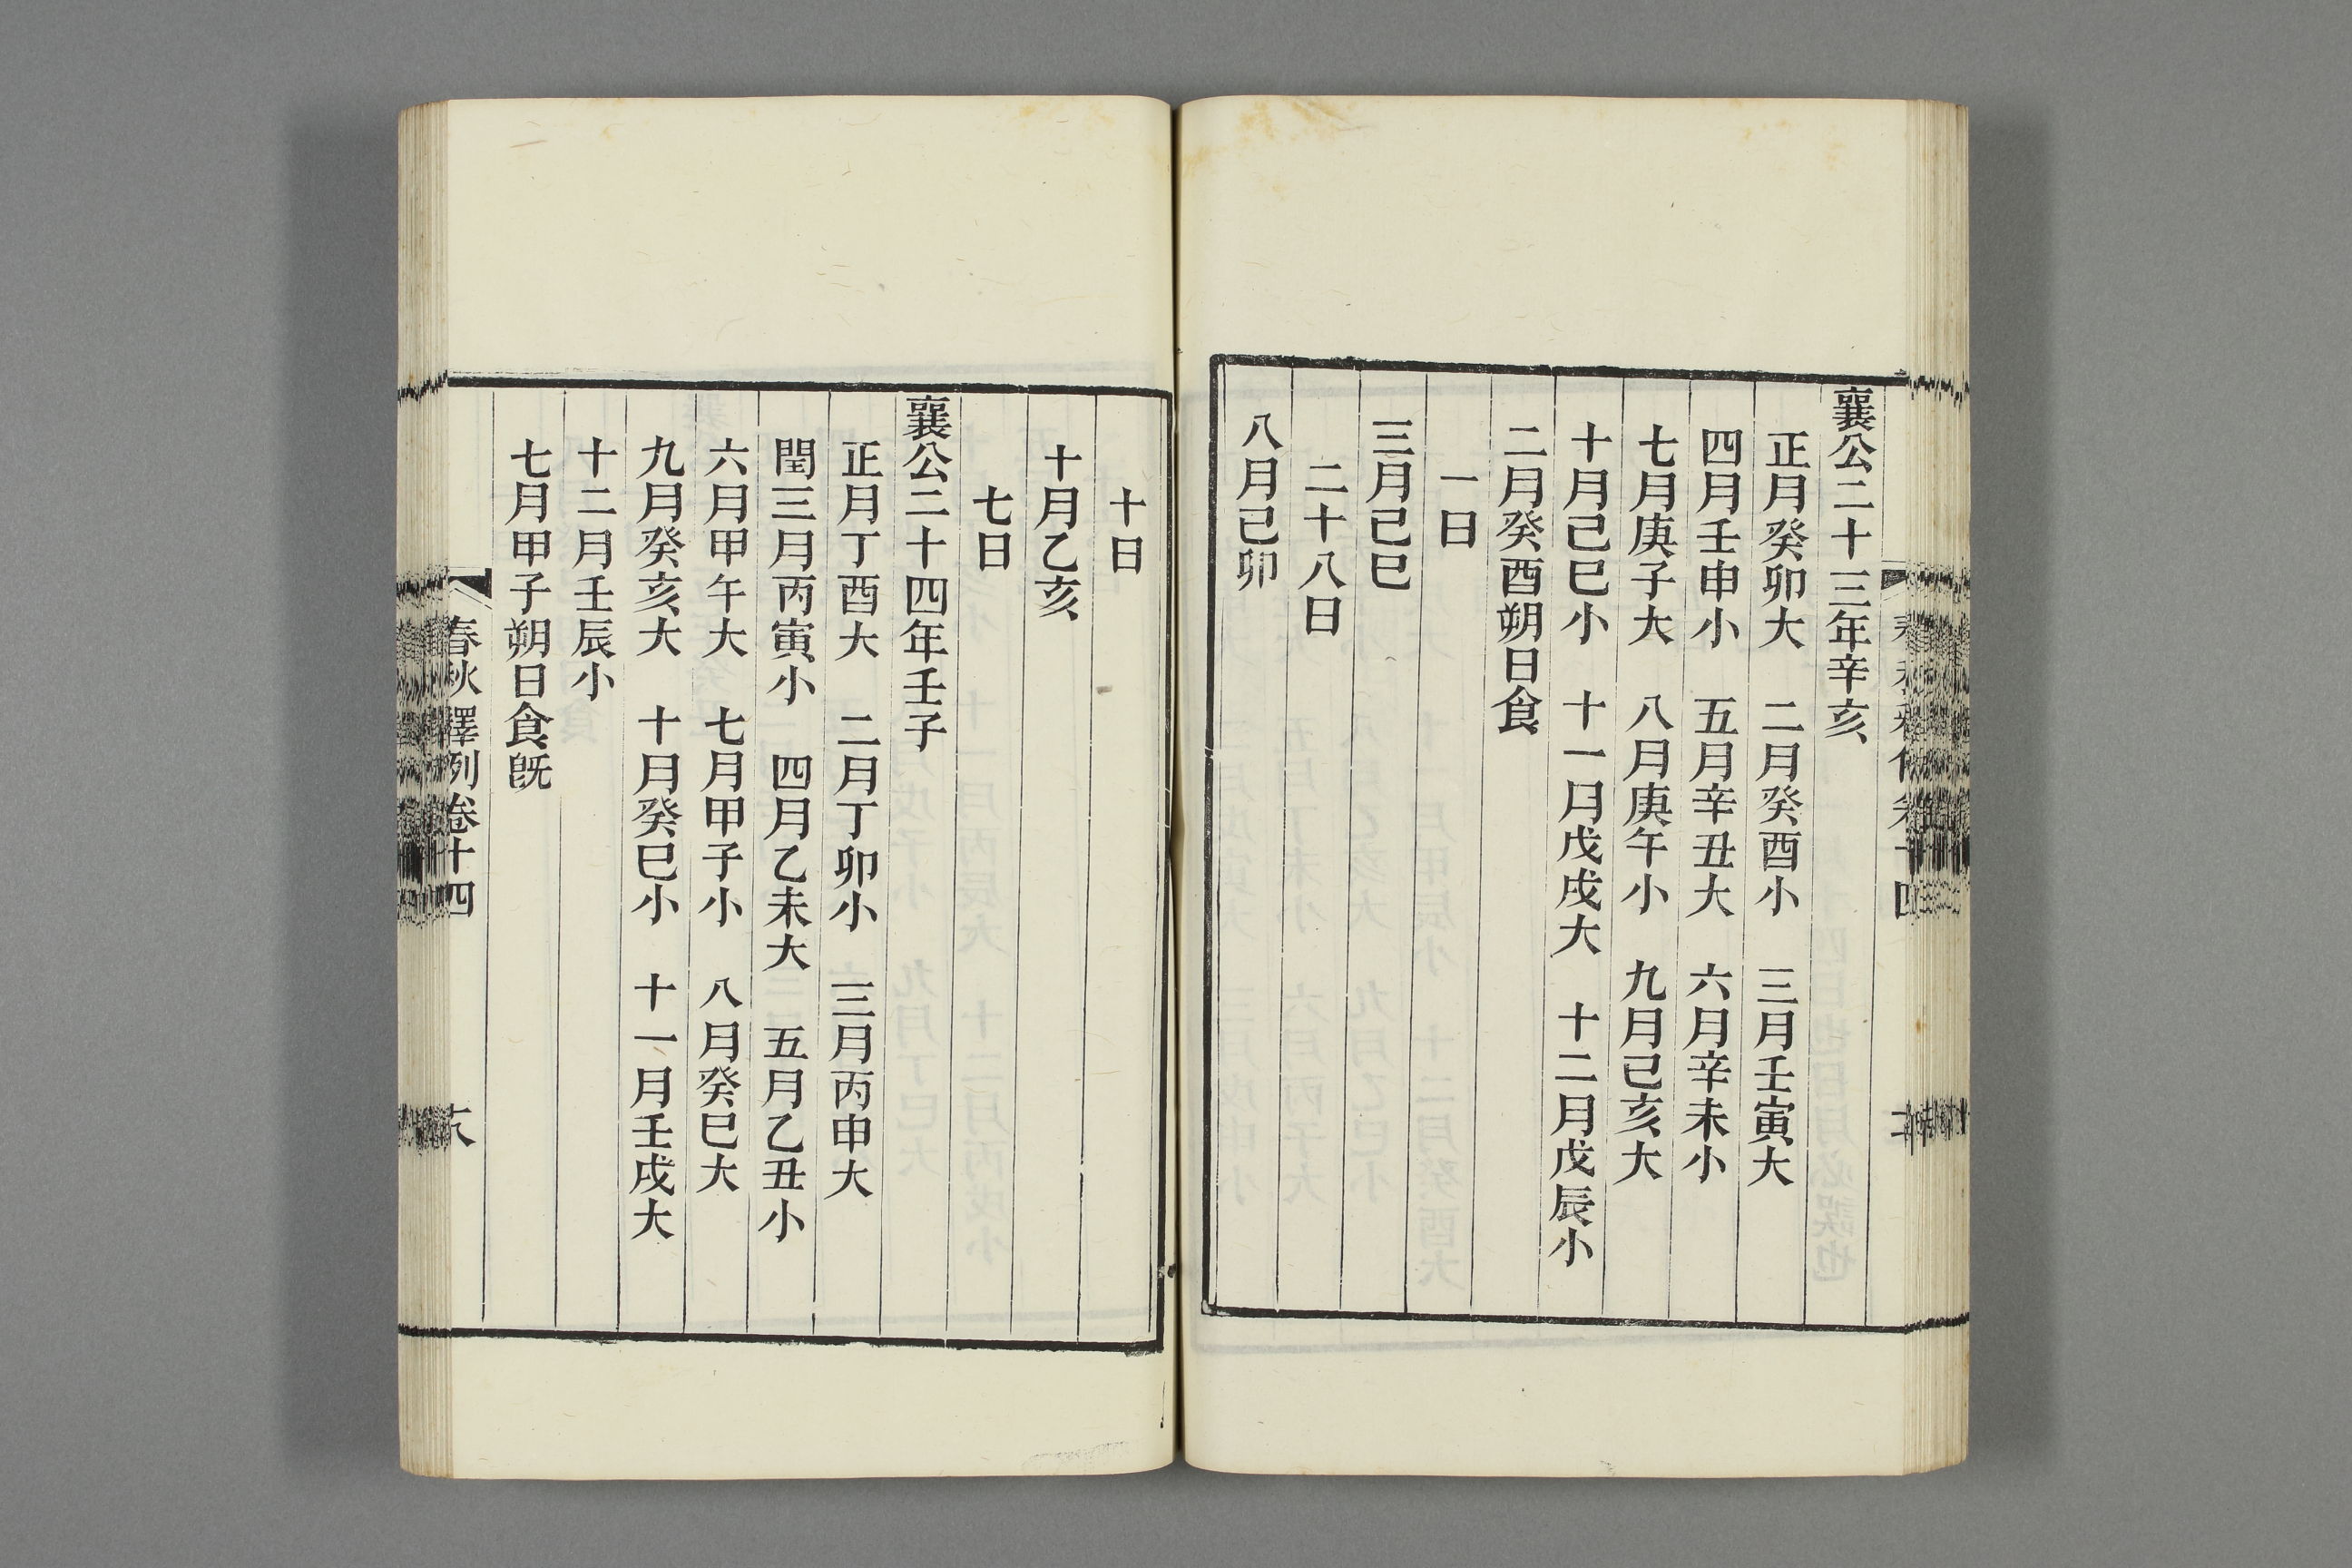 襄公二十三年辛亥
正月癸卯大　二月癸酉小　三月壬寅大
四月壬申小　五月辛丑大　六月辛未小
七月庚子大　八月庚午小　九月己亥大
十月己巳小　十一月戊戌大　十二月戊辰小
二月癸酉朔日食
一日
三月己巳
二十八日
八月己卯
十日
十月乙亥
七日
襄公二十四年壬子
正月丁酉大　二月丁卯小　三月丙申大
閏三月丙寅小　四月乙未大　五月乙丑小
六月甲午大　七月甲子小　八月癸巳大
九月癸亥大　十月癸巳小　十一月壬戌大
十二月壬辰小
七月甲子朔日食旣
春秋釋例卷十四